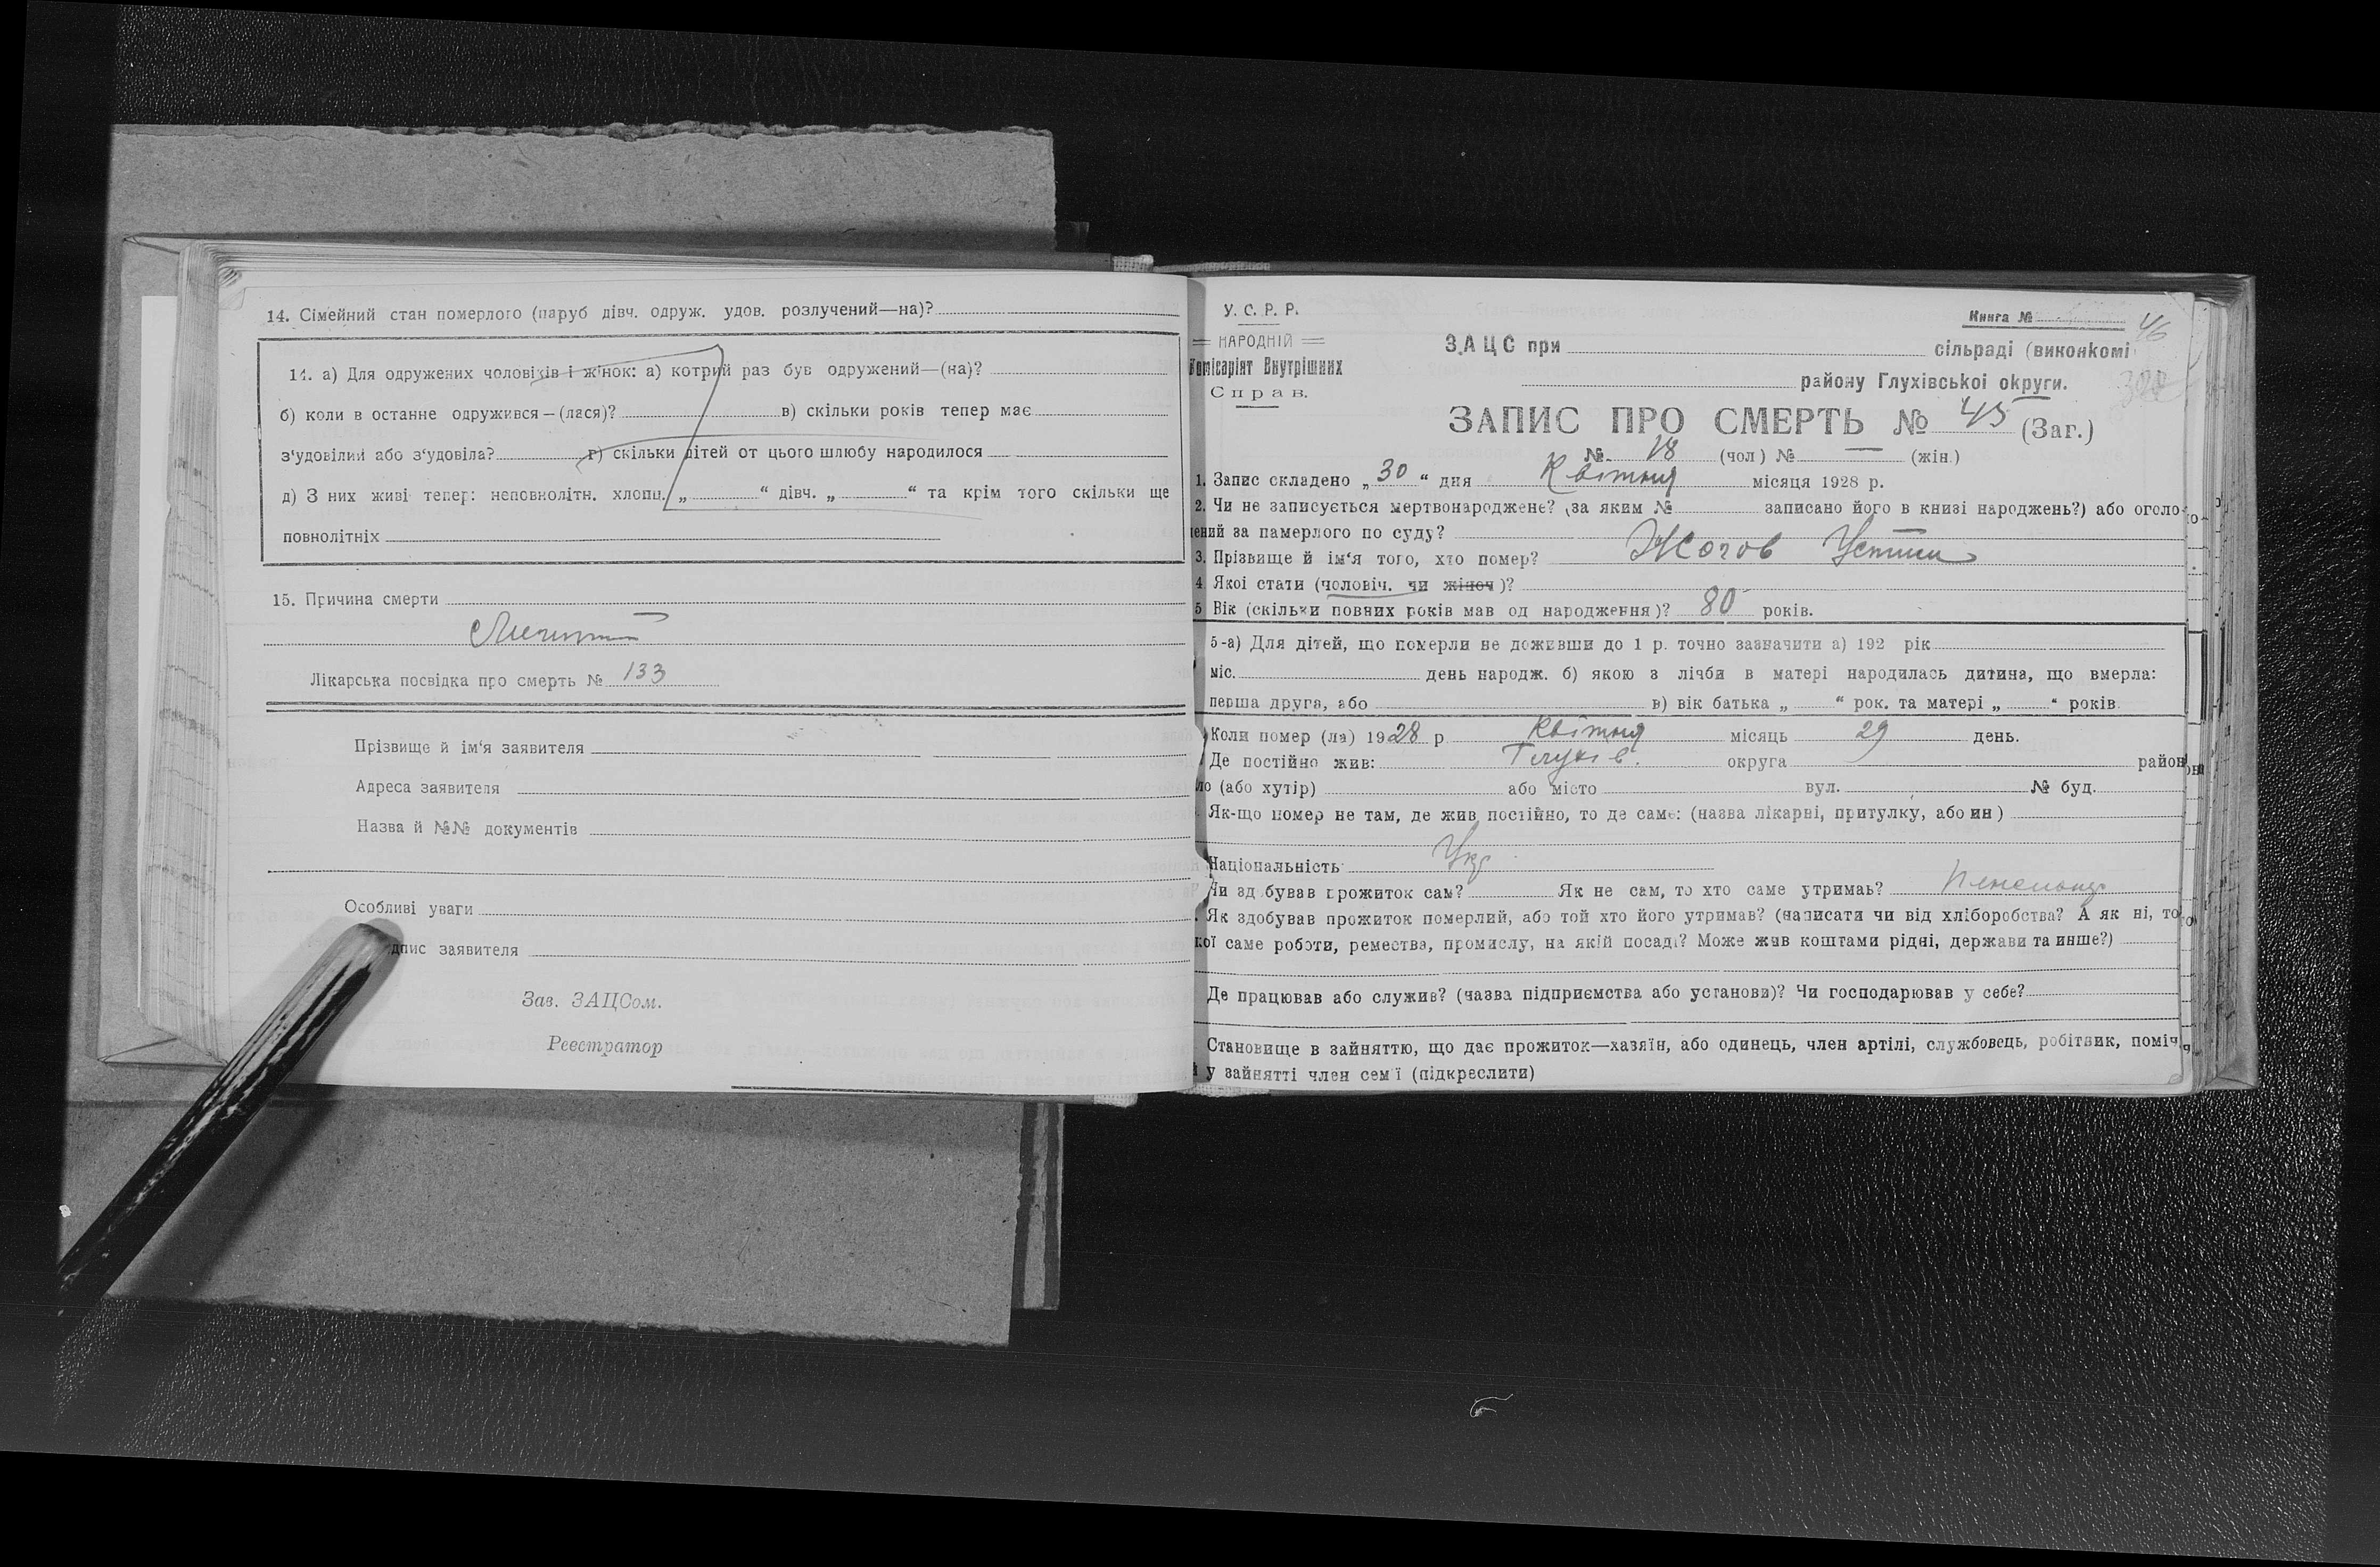 14. Сімейний стан померлого (паруб дівч. одруж. удов. розлучений—на)?
14. а) Для одружених чоловіків і жінок: а) котрий раз був одружений—(на)?
б) коли в останне одружився—(лася)? в) скільки років тепер має
з‘удовілий або з‘удовіла? г) скільки дітей от цього шлюбу народилося
д) З них живі тепер: неповнолітн. хлопц. „ “ дівч. „ “ та крім того скільки ще
повнолітніх
15. Причина смерти
Лікарська посвідка про смерть № 133
Прізвище й ім‘я заявителя
Адреса заявителя
Назва й №№ документів
Особливі уваги
дпис заявителя
Зав. ЗАЦСом.
Реєстратор
У. С. Р. Р.
НАРОДНІЙ
Комісаріят Внутрішних
Справ.
Книга №
46
ЗАЦС при сільраді (виконкомі
району Глухівської округи.
ЗАПИС ПРО СМЕРТЬ № 45 (Заг.)
№ 18 (чол) № — (жін.)
1. Запис складено „30“ дня Квітня місяця 1928 р.
2. Чи не записується мертвонароджене? (за яким № записано його в книзі народжень?) або оголо
шений за памерлого по суду?
3. Прізвище й ім‘я того, хто помер? Жогов Устин
4. Якої стати (чоловіч. чи жіноч)?
5 Вік (скільки повних років мав од народження)? 80 років.
5-а) Для дітей, що померли не доживши до 1 р. точно зазначити а) 192 рік
міс. день народж. б) якою з лічби в матері народилась дитина, що вмерла:
перша друга, або в) вік батька „ “ рок. та матері „ “ років
Коли помер (ла) 1928 р Квітня місяць 29 день.
Де постійно жив: Глухів. округа район
ло (або хутір) або місто вул. № буд.
Як-що помер не там, де жив постійно, то де саме: (назва лікарні, притулку, або ин)
Національність Укр
Чи здобував прожиток сам? Як не сам, то хто саме утримав?
Як здобував прожиток померлий, або той хто його утримав? (написати чи від хліборобства? А як ні, то
кої саме роботи, ремества, промислу, на якій посаді? Може жив коштами рідні, держави та инше?)
Де працював або служив? (назва підприємства або установи)? Чи господарював у себе?
Становище в зайняттю, що дає прожиток—хазяїн, або одинець, член артілі, службовець, робітник, поміч
й у зайнятті член сем‘ї (підкреслити)